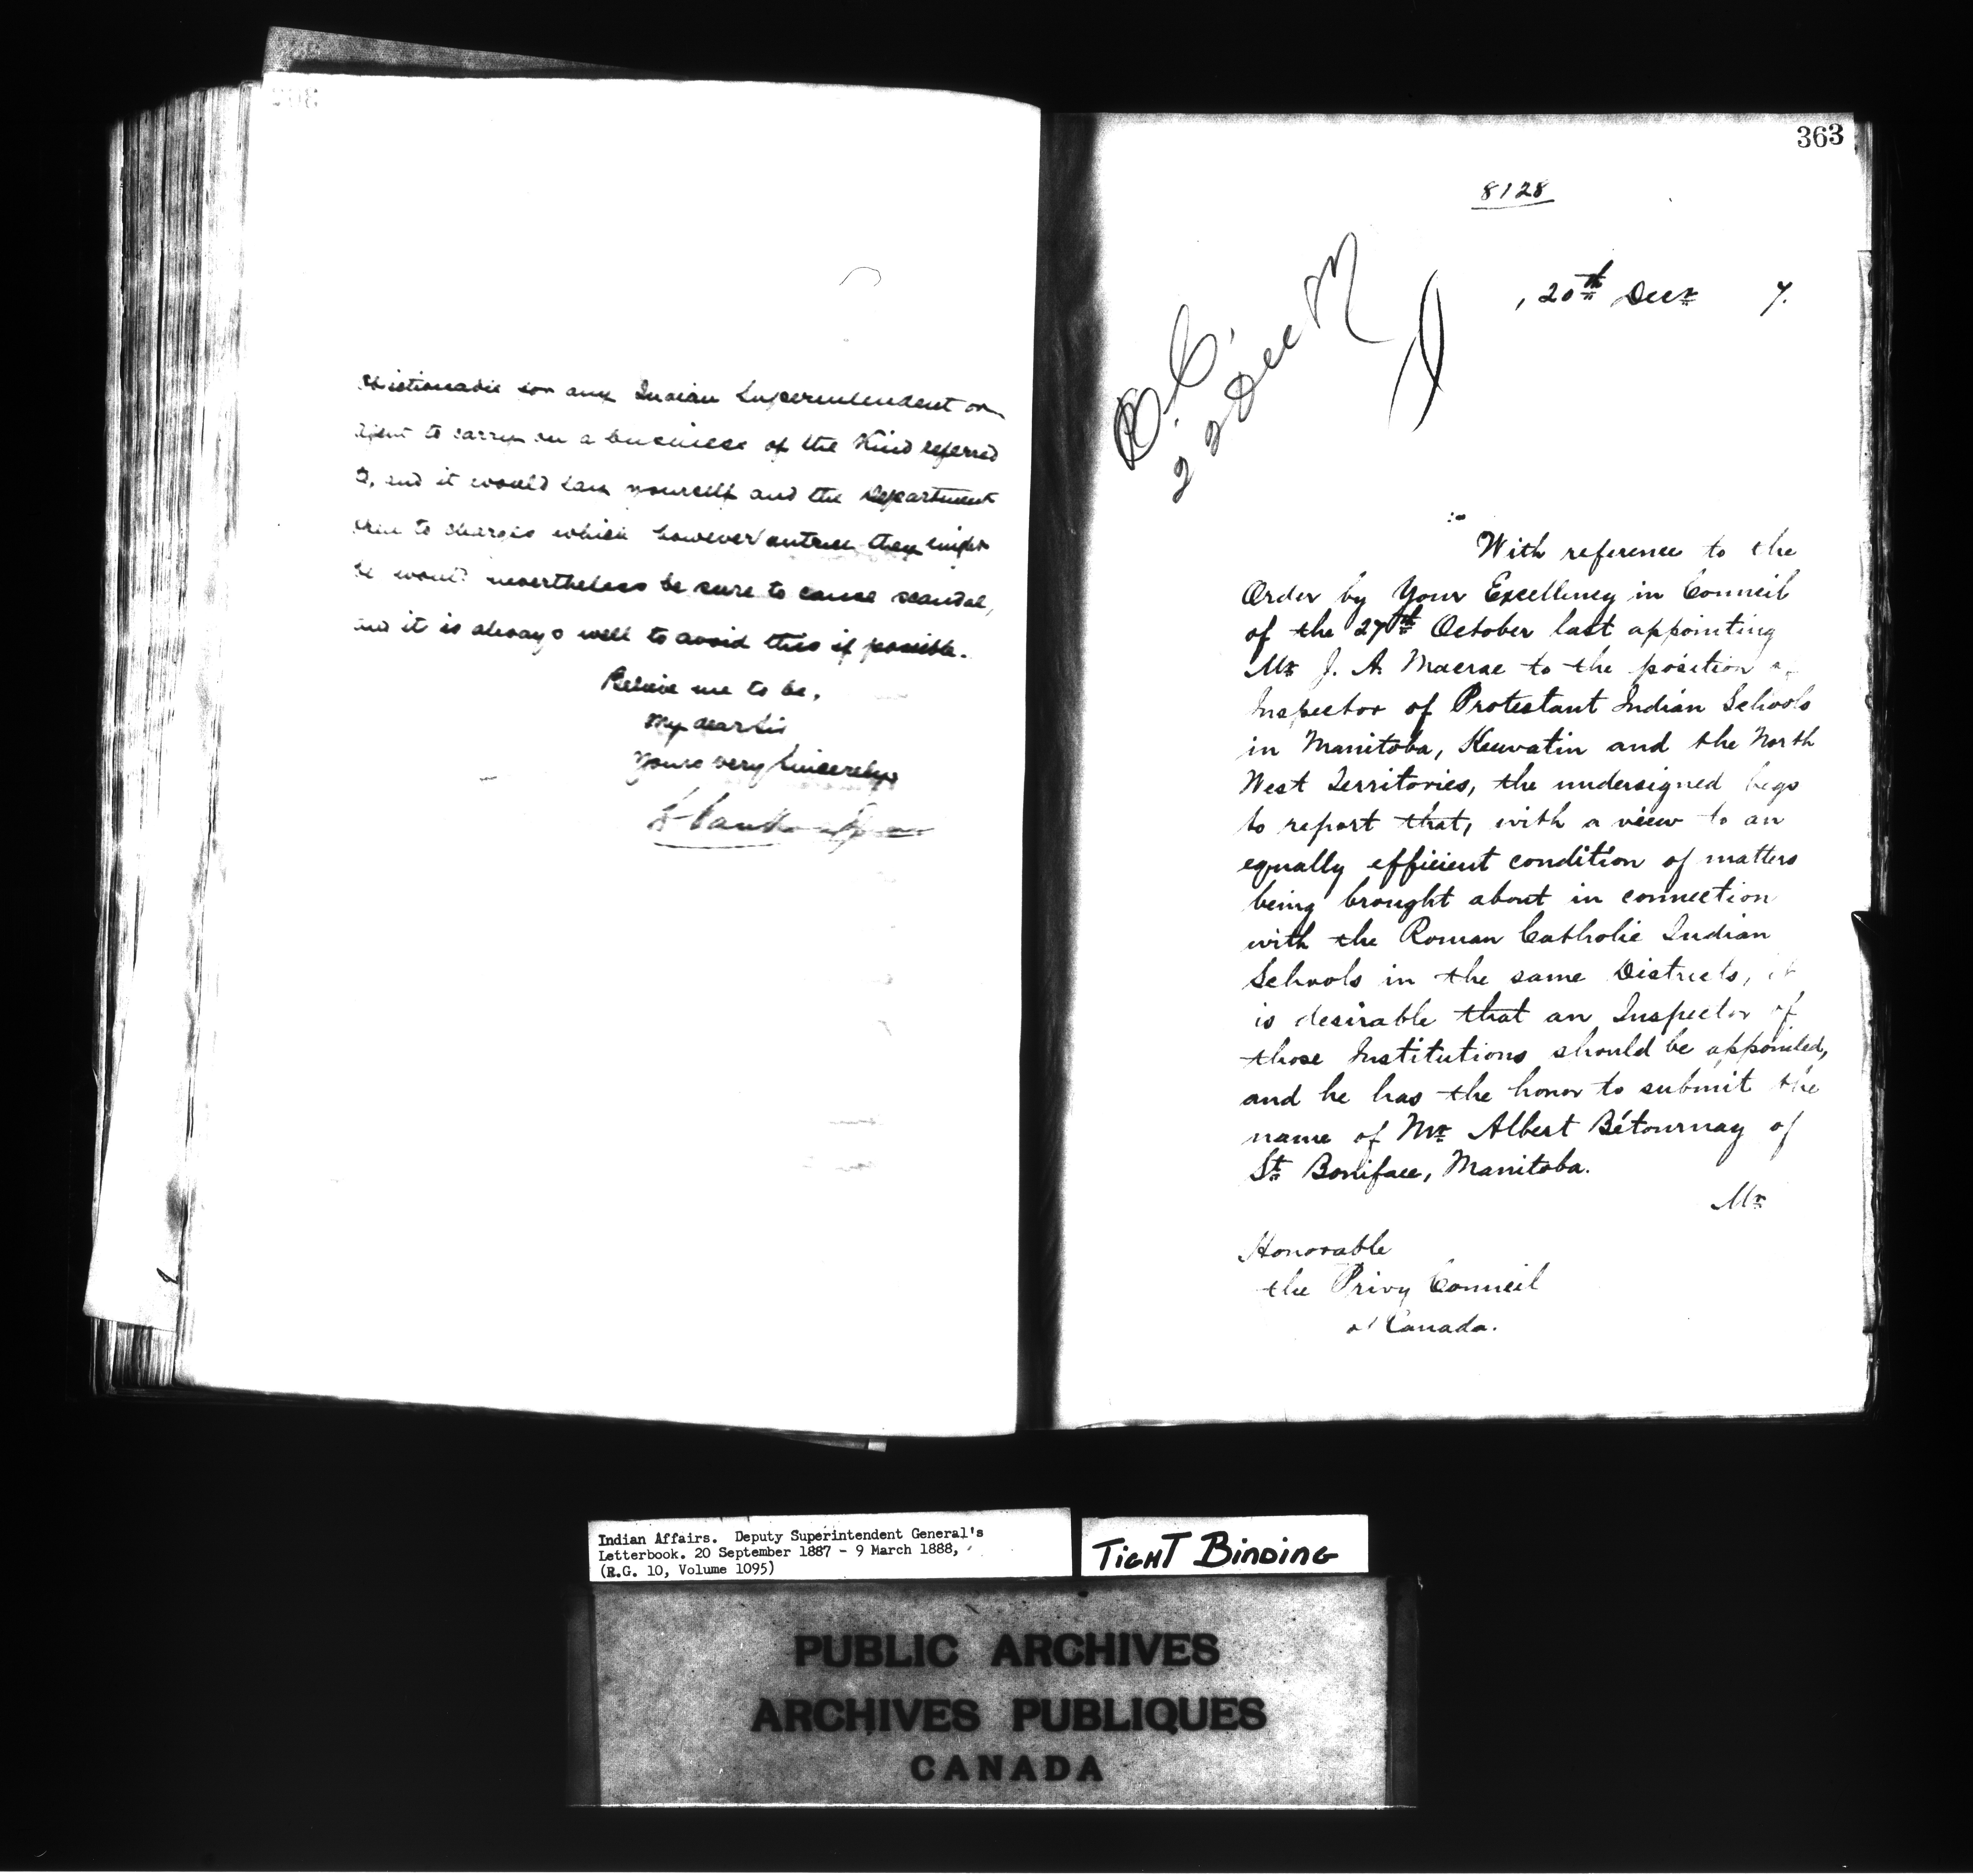 objectionable for any Indian Superintendent or
Agent to carry on a business of the kind referred
to, and it would lay yourself and the Department
open to charges which however untrue they might
be would nevertheless be sure to cause scandal,
and it is always well to avoid this if possible.
Believe me to be,
My dear Sir
Yours very Sincerely,
L. Vankoughnet
363
8128
, 20th Decr 7.
P.C.
22 Dec
With reference to the
Order by Your Excellency in Council
of the 27th October last appointing
Mr J. A. Macrae to the position of
Inspector of Protestant Indian Schools
in Manitoba, Keewatin and the North
West Territories, the undersigned begs
to report that, with a view to an
equally efficient condition of matters
being brought about in connection
with the Roman Catholic Indian
Schools in the same Districts, it
is desirable that an Inspector of
those Institutions should be appointed,
and he has the honor to submit the
name of Mr Albert Bétournay of
St Boniface, Manitoba.
Mr
Honorable
the Privy Council
of Canada.
Indian Affairs. Deputy Superintendent General's
Letterbook. 20 September 1887 - 9 March 1888,
(R.G. 10, Volume 1095)
TIGHT BINDING
PUBLIC ARCHIVES
ARCHIVES PUBLIQUES
CANADA